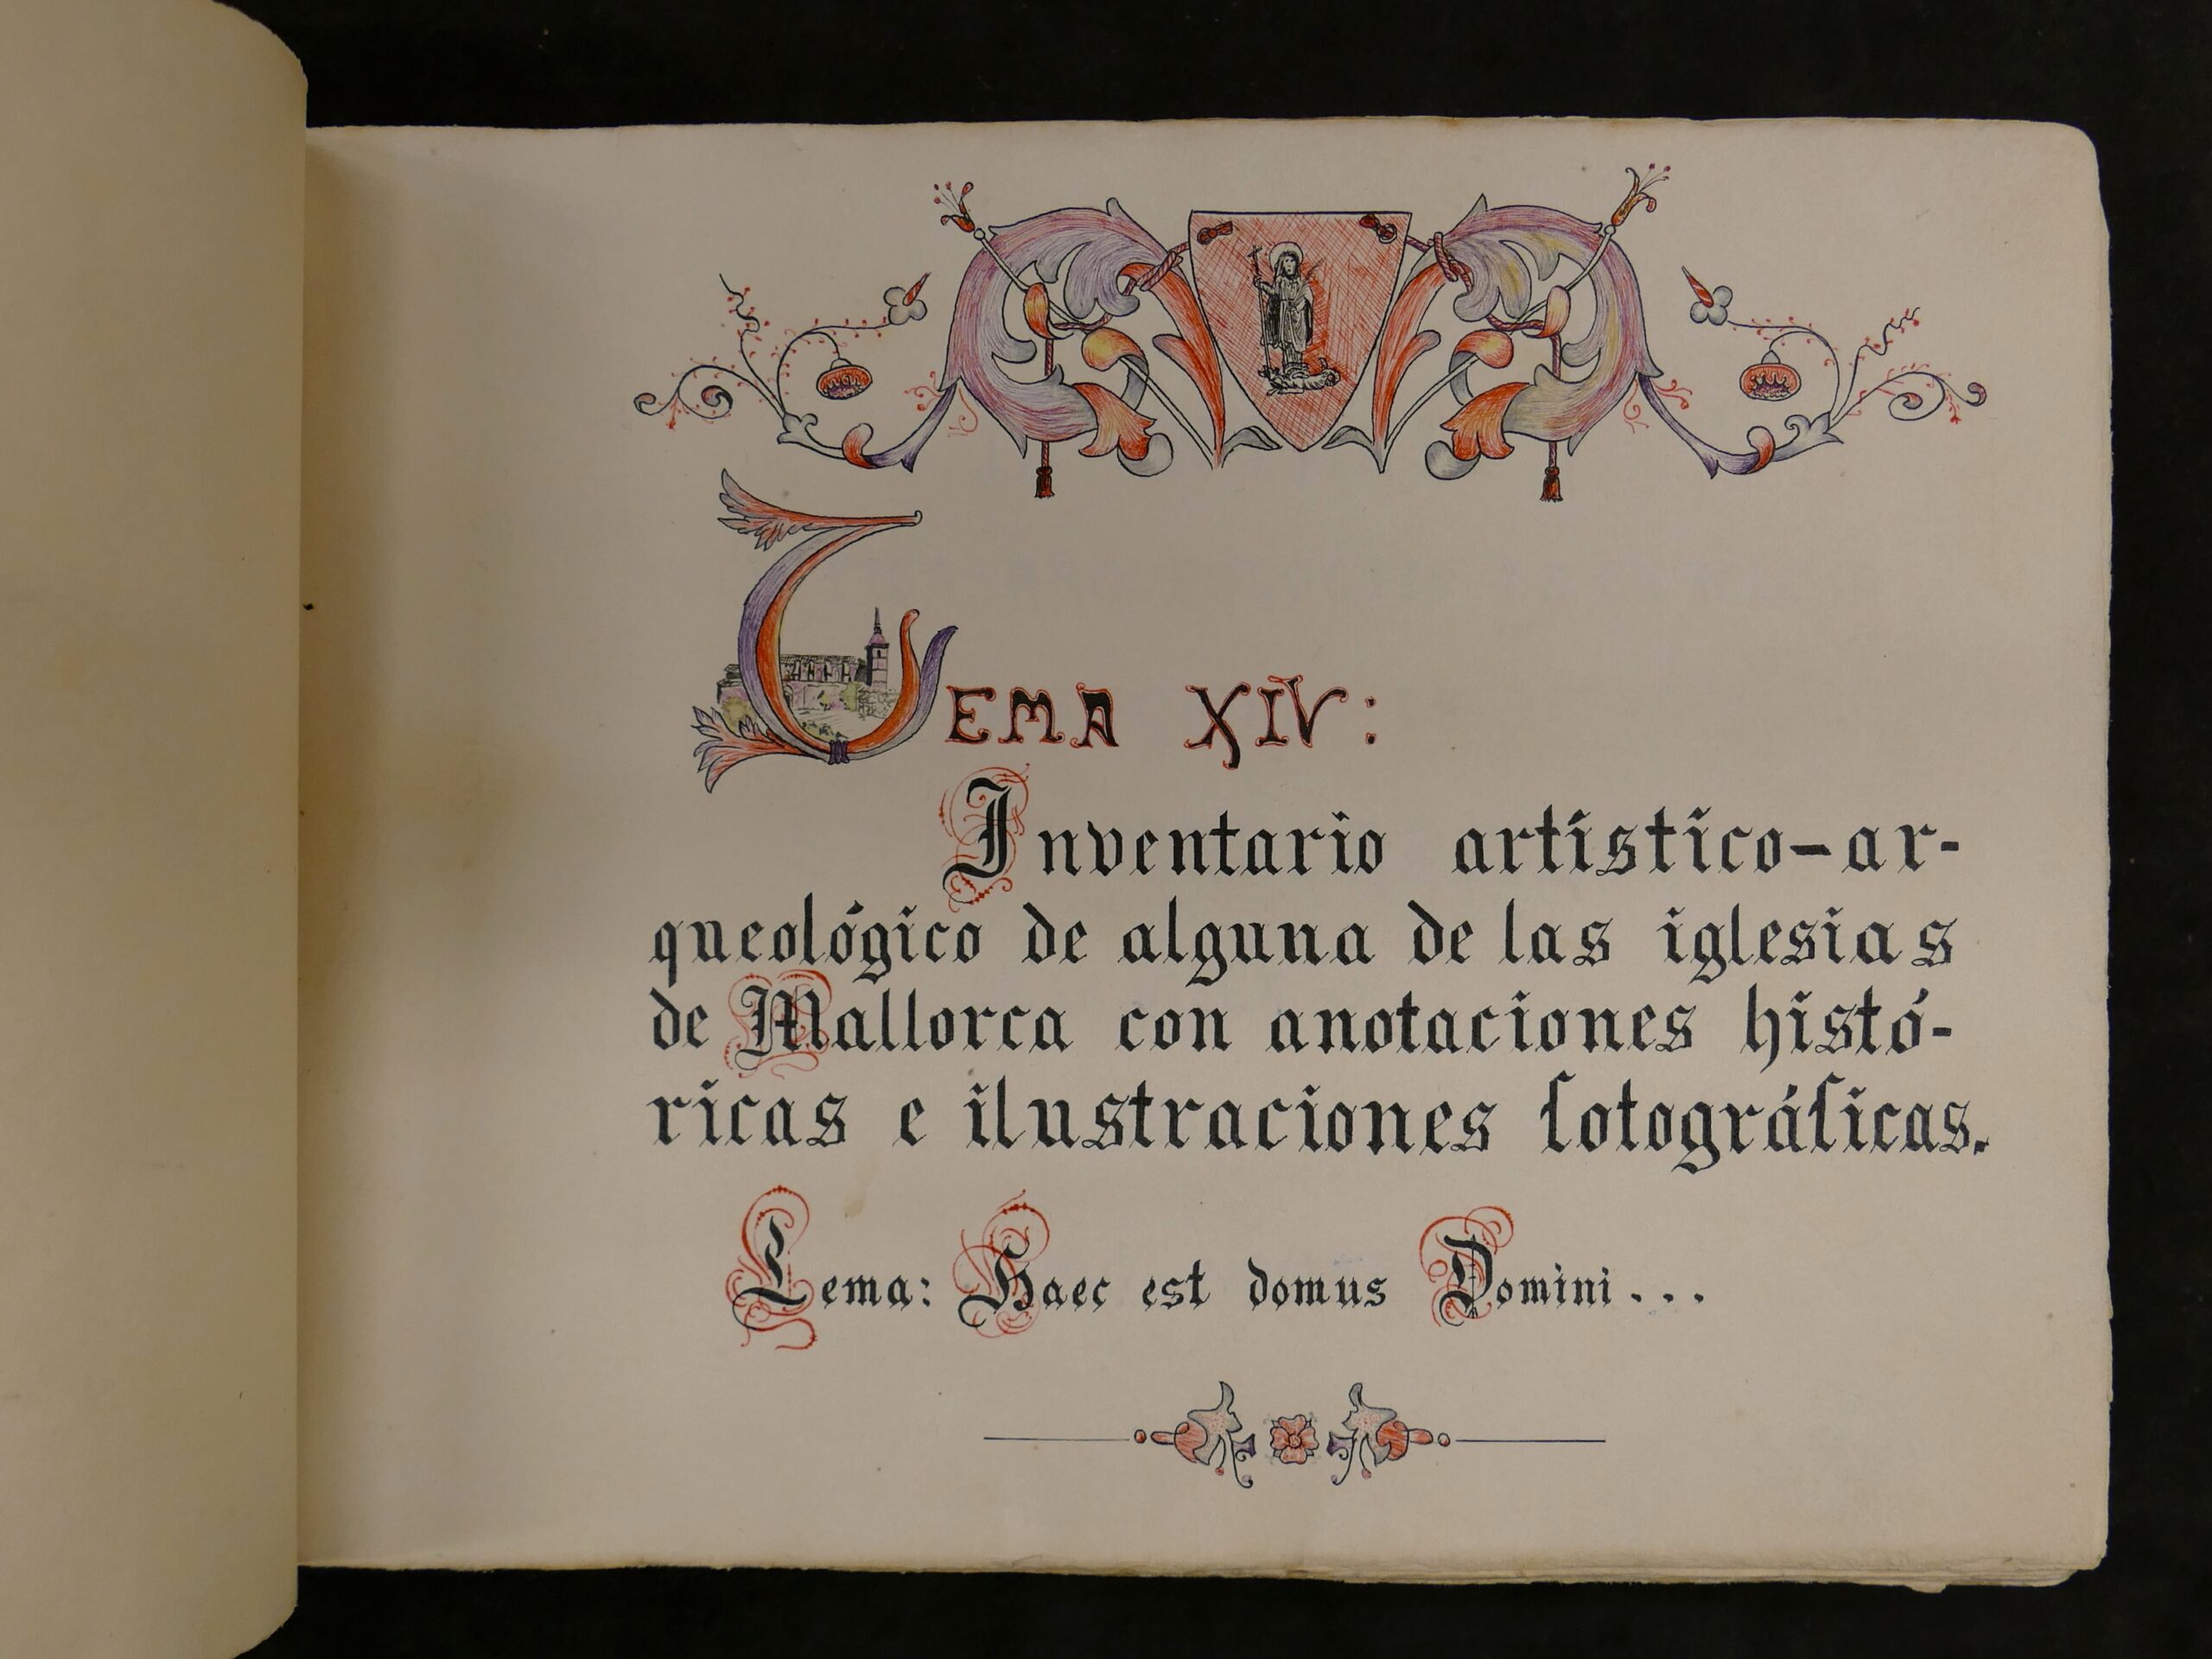 TEMA XIV:
Inventario artístico-ar-
queológico de alguna de las iglesias
de Mallorca con anotaciones histó-
ricas e ilustraciones fotográficas.
Lema: Haec est domus Domini...